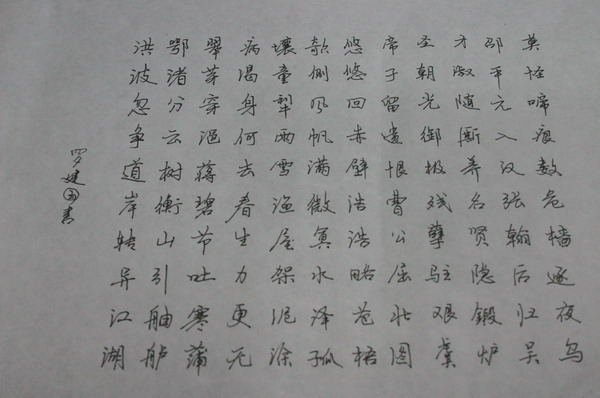 莫怪啼痕数危樯逐夜乌
邵平元入汉张翰后归吴
才淑随厮养名贤隐锻炉
圣朝光御极残孽驻艰虞
帝子留遗恨曹公屈壮图
悠悠回赤壁浩浩略苍梧
欹侧风帆满微冥水泽孤
壤童犁雨雪渔屋架泥涂
病渴身何去春生力更无
翠芽穿浥蒋碧节吐寒蒲
鄂渚分云树衡山引舳舻
洪波忽争道岸转异江湖
罗建国书